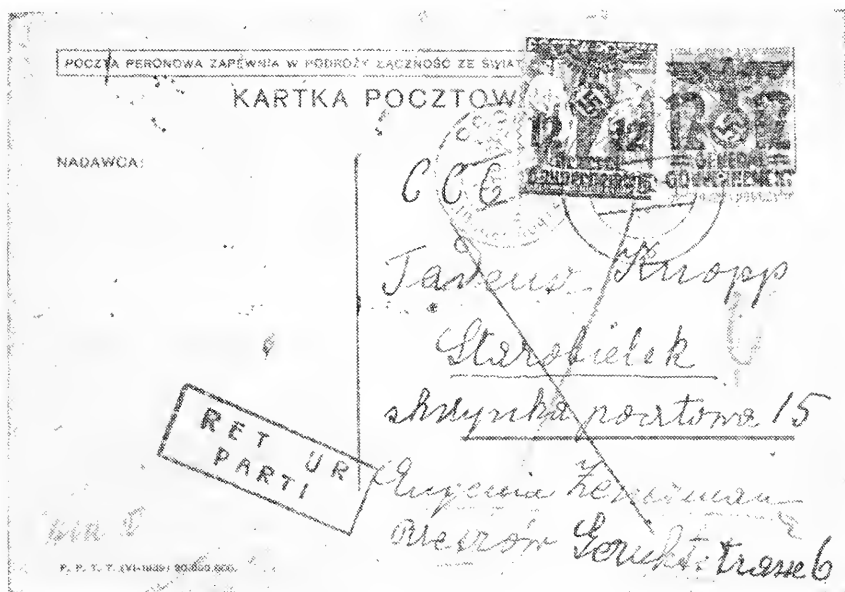 POCZTA PERONOWA ZAPEWNIA W PODRÓŻY ŁĄCZNOŚĆ ZE ŚWIAT
KARTKA POCZTOW
12 12
GENERAL
GOUVERNEMENT
12 12
GENERAL
GOUVERNEMENT
NADAWCA:
CCC
Tadeusz Knopp
Starobielsk
skrzynka pocztowa 15
RET UR
PARTI
Eugenia
Rzeszów trasse 6
P. P. T. T. (VI-1939)